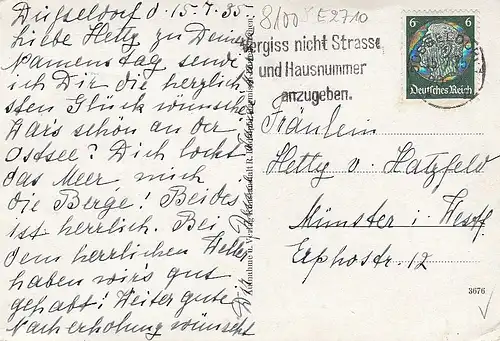 Düsseldorf d. 15.7.35
Liebe Hetty zu Deinem
Namenstag sende
ich Dir die herzlich
sten Glück wünsche
War's schön an der
Ostsee? Dich lockt
das Meer, mich
die Berge! Beides
ist herrlich. Bei
dem herrlichen Wetter
haben wir's gut
gehabt! Weiter gute
Nacherholung wünscht
8/00 E2710
Vergiss nicht Strasse
und Hausnummer
anzugeben.
6 6
Deutsches Reich
Fräulein
Hetty v. Hatzfeld
Münster i. Westf
Erphostr. 12
3676